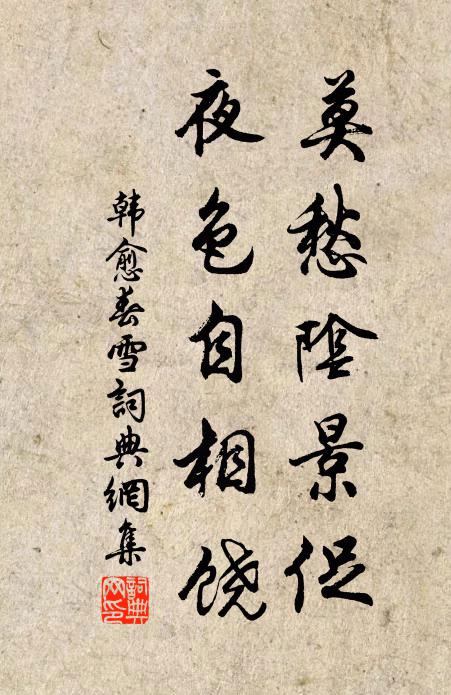 莫愁陰景促
夜色自相饶
韩愈春雪詞典網集
詞典网印